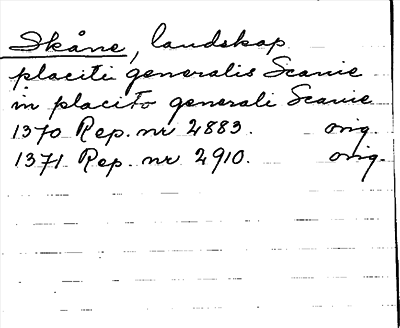 Skåne, landskap
placiti generalis Scanie
in placito generali Scanie
1370 Rep. nr 2883. orig.
1371 Rep. nr 2910. orig.